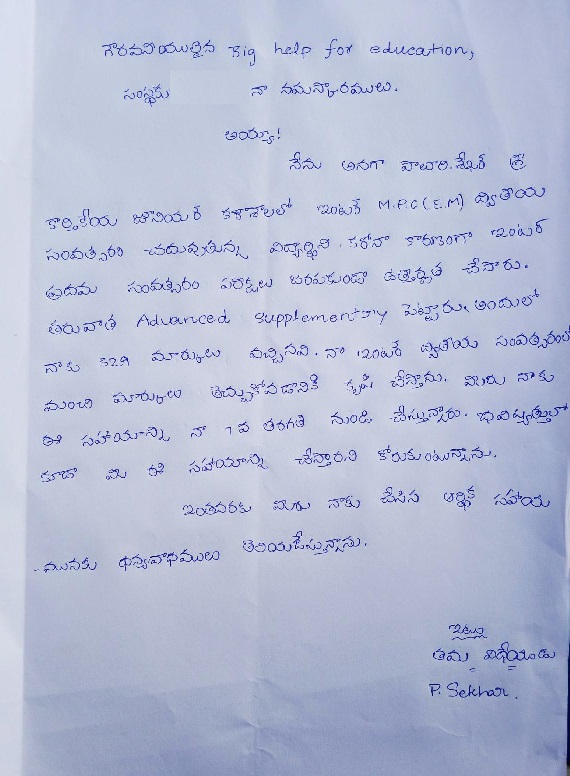 గౌరవనీయులైన Big help for education,
సంస్థకు నా నమస్కారములు.
అయ్యా!
నేను అనగా పాలారి.శేఖర్ శ్రీ
కార్తికేయ జూనియర్ కళాశాలలో ఇంటర్ M.P.C(E.M) ద్వితీయ
సంవత్సరం చదువుతున్న విద్యార్థిని. కరోనా కారణంగా ఇంటర్
ప్రథమ సంవత్సరం పరీక్షలు జరపకుండా ఉత్తీర్ణత చేసారు.
తరువాత Advanced supplementry పెట్టారు. అందులో
నాకు 329 మార్కులు వచ్చినవి. నా ఇంటర్ ద్వితీయ సంవత్సరంలో
మంచి మార్కులు తెచ్చుకోవడానికి కృషి చేస్తాను. మీరు నాకు
ఈ సహాయాన్ని నా 7వ తరగతి నుండి చేస్తున్నారు. భవిష్యత్తులో
కూడా మీ ఈ సహాయాన్ని చేస్తారని కోరుకుంటున్నాను.
ఇంతవరకు మీరు నాకు చేసిన ఆర్థిక సహాయ
మునకు ధన్యవాదములు తెలియజేస్తున్నాను.
ఇట్లు
తమ విధేయుడు
P. Sekhar.